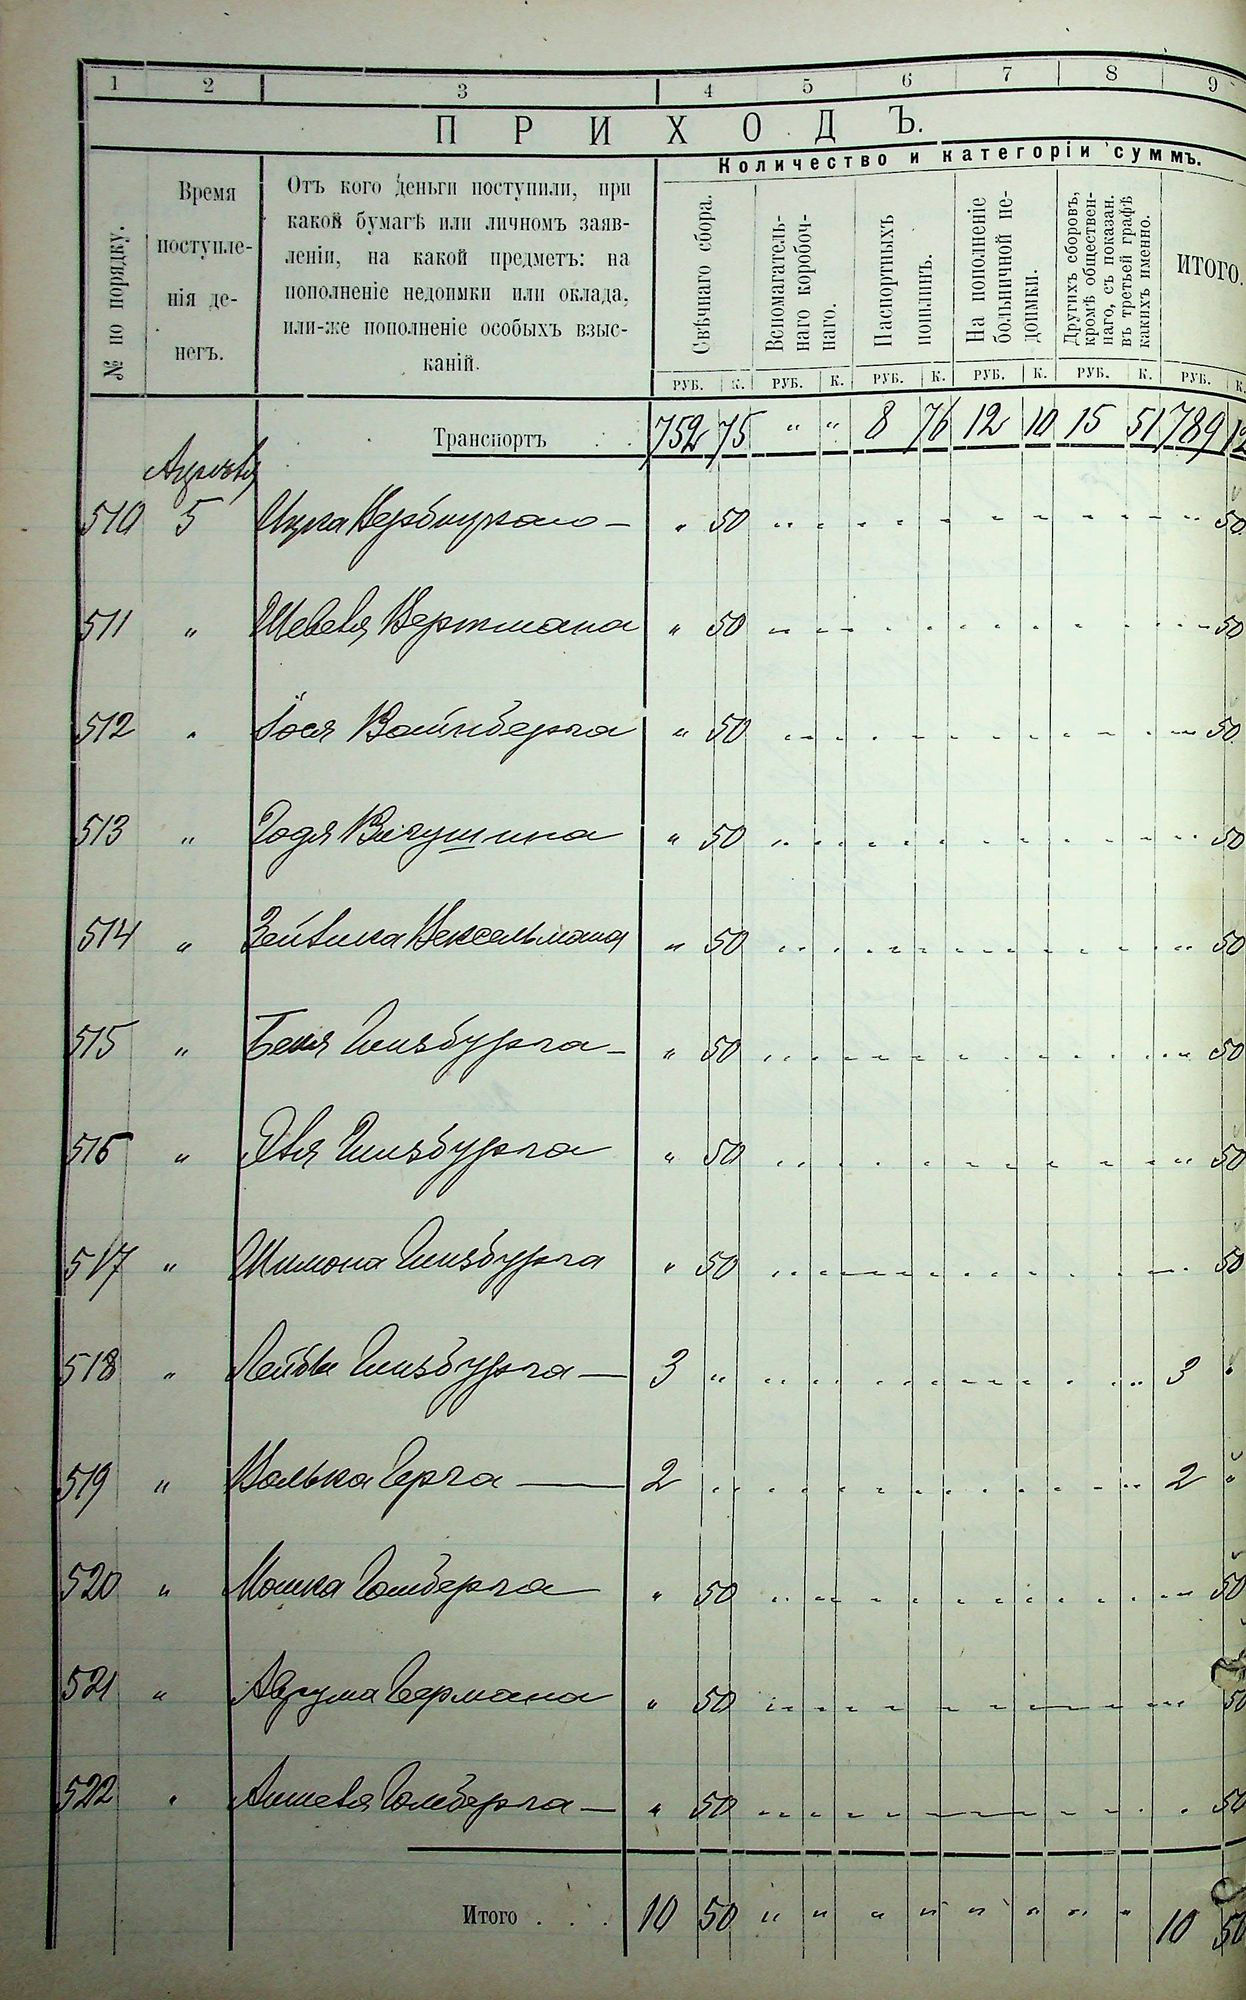 1 2 3 4 5 6 7 8 9
ПРИХОДЪ.
Количество и категоріи суммъ.
№ по порядку.
Время
поступле-
нія де-
негъ.
Отъ кого деньги поступили, при
какой бумагѣ или личномъ заяв-
леніи, на какой предметъ: на
пополненіе недоимки или оклада,
или-же пополненіе особыхъ взыс-
каній.
Свѣчнаго сбора.
Вспомагатель-
наго коробоч-
наго.
Паспортныхъ
пошлинъ.
На пополненіе
больничной не-
доимки.
Другихъ сборовъ,
кромѣ обществен-
наго, съ показан.
въ третьей графѣ
какихъ именно.
ИТОГО.
РУБ. К. РУБ. К. РУБ. К. РУБ. К. РУБ. К. РУБ. К.
Транспортъ . . 752 75 " " 8 76 12 10 15 51 789 12
510 5 " 50 50
511 " " 50 50
512 " Іося Вайнберга " 50 50
513 " Годя " 50 50
514 " Зейвика Вексельмана " 50 50
515 " Беня Гинзбурга — " 50 50
516 " Гинзбурга " 50 50
517 " Шимона Гинзбурга " 50 50
518 " Лейбы Гинзбурга — 3 " 3 "
519 " Волька Герча — 2 2 "
520 " Мошка Гомберга " 50 50
521 " Аврума Германа " 50 50
522 " Аншеля Гольберга — " 50 50
Итого . . . 10 50 " " " " " " " " 10 50